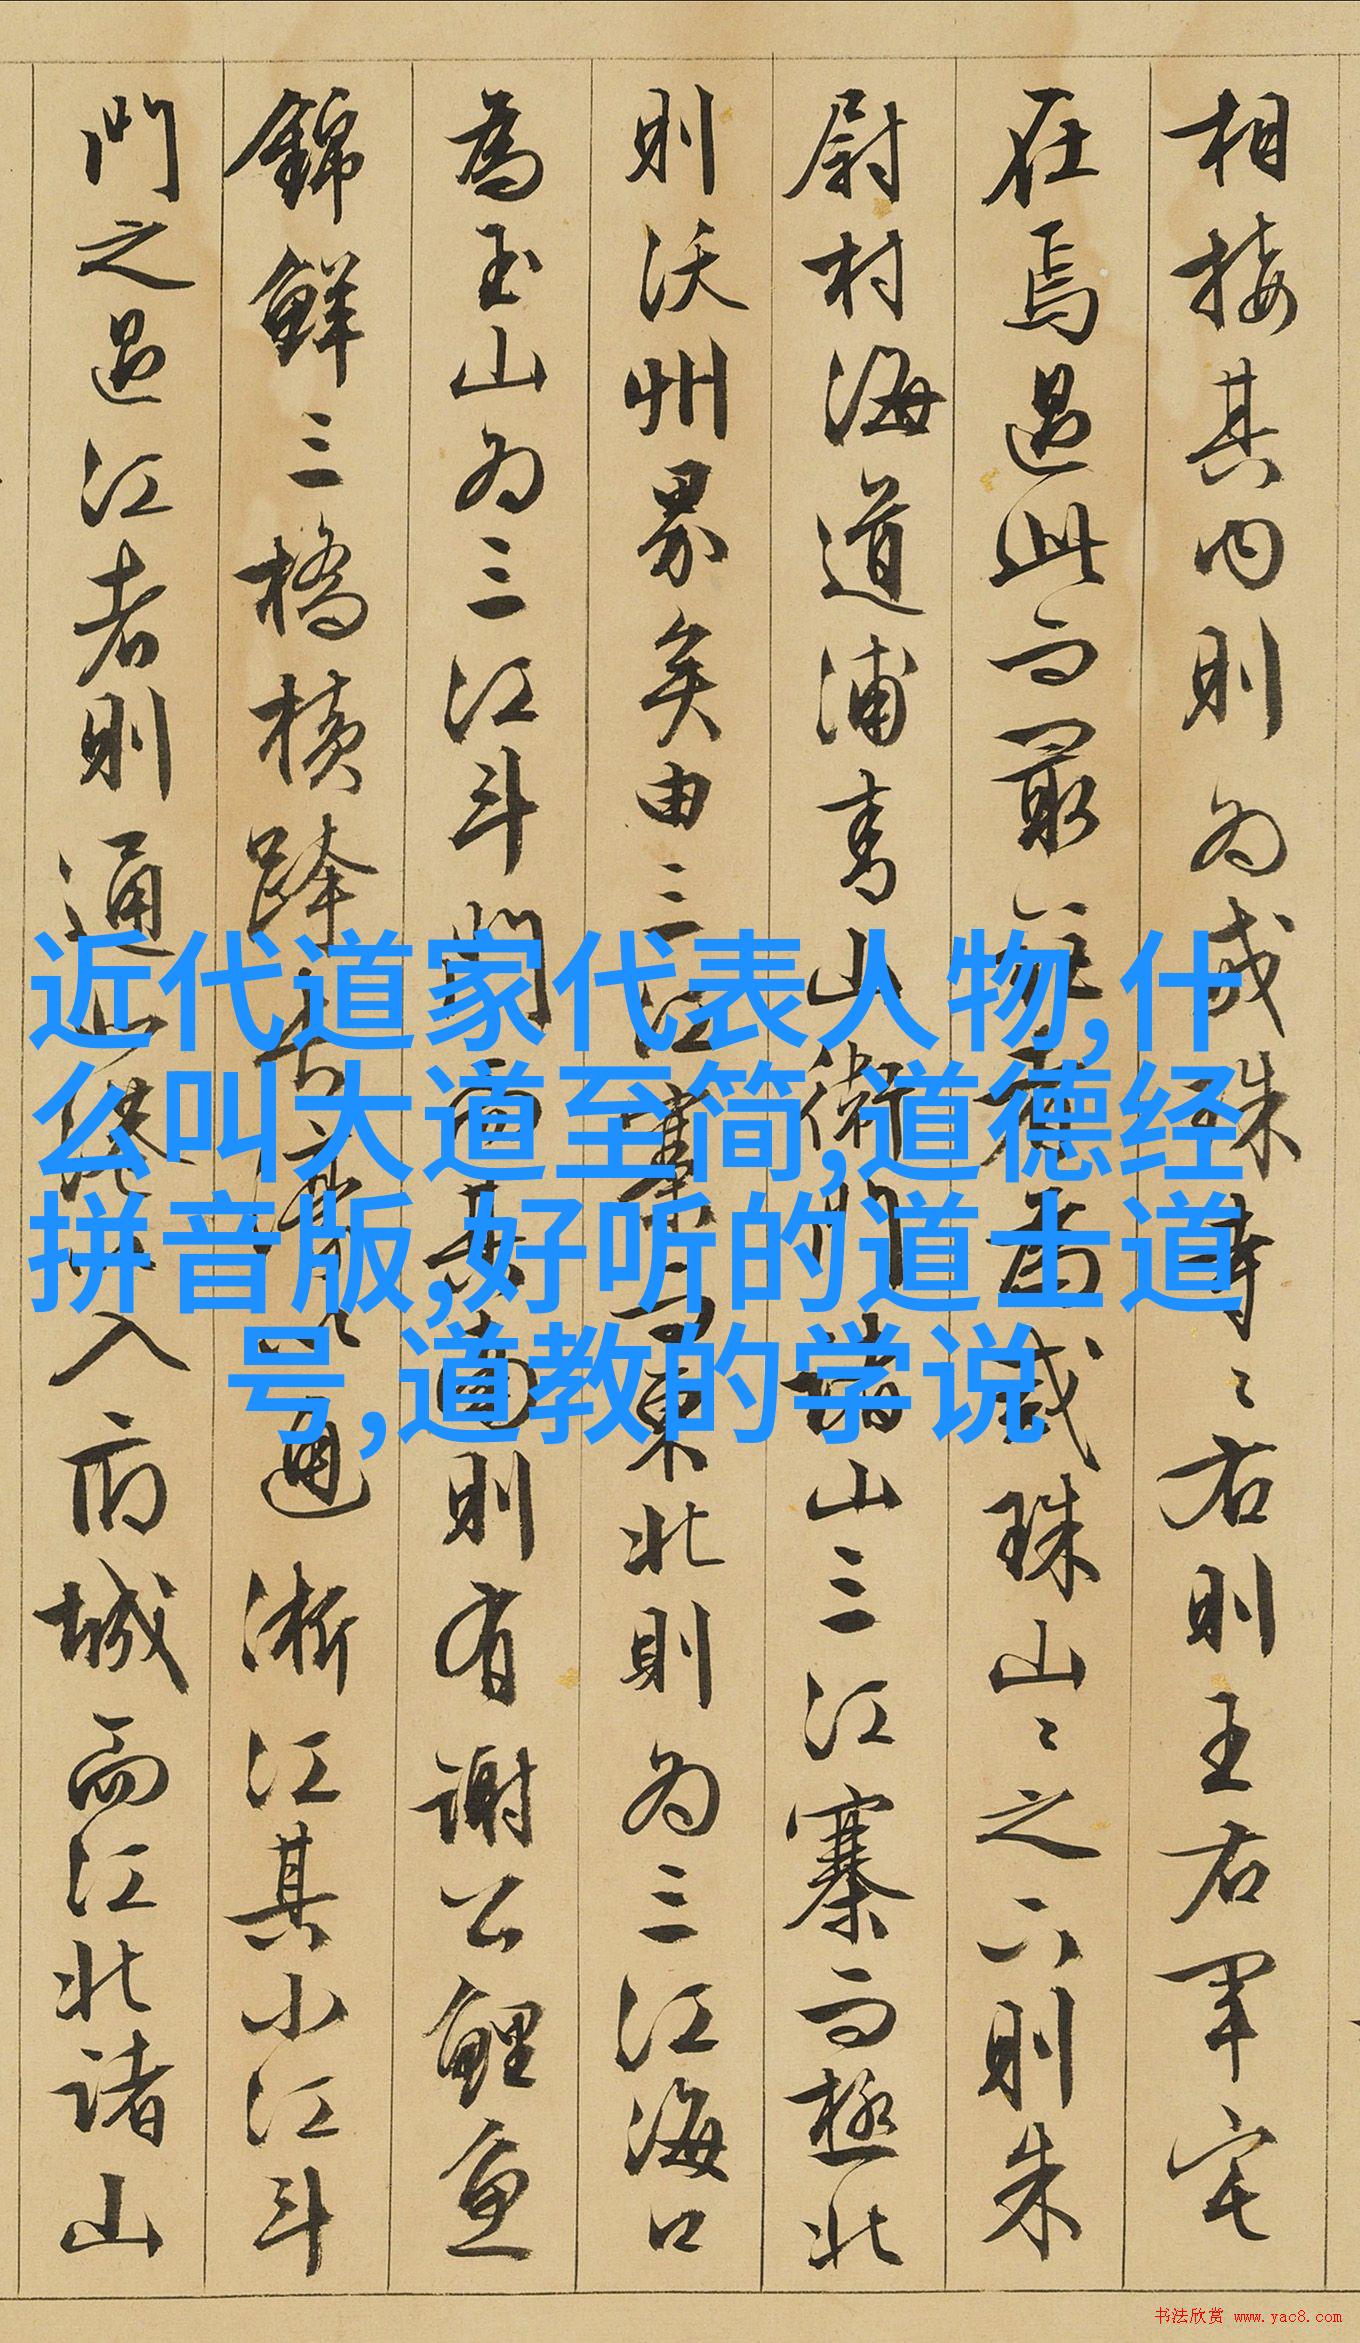 相接其内則为戒珠寺〻右則王右軍宅
在焉過此而最
为戒珠山〻之
則朱
尉村海道浦青山衛
諸山三江寨而極北
則沃州界矣由三江寨而東北則为三江海口
為玉山为三江斗門
其南則有謝公鯉魚
錦鮮三橋橫跨
通浙江其小江斗
門之過江者則通
入府城而江北諸山
近代道家代表人物,什
么叫大道至简,道德经
拼音版,好听的道士道
号,道教的学说
书法欣赏 www.yac8.com